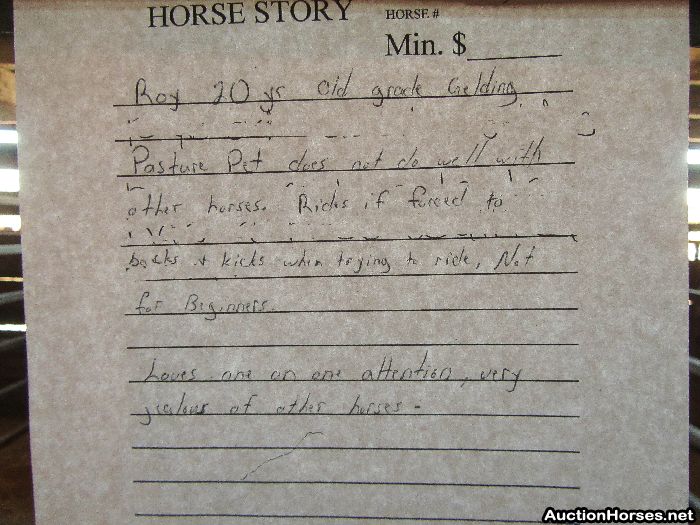 HORSE STORY
HORSE #
Min. $
Roy 20 yr old grade Gelding
Pasture Pet does not do well with
other horses. Rides if forced to
bucks + kicks when trying to ride, Not
for Beginners.
Loves one on one attention, very
jealous of other horses -
AuctionHorses.net